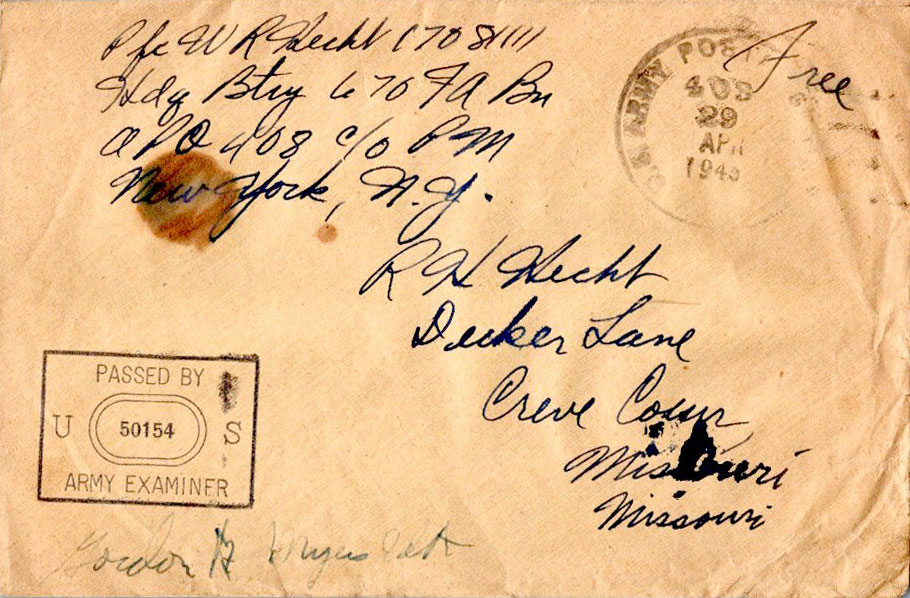 Pfc W R Hecht 17081111
Hdq Btry 670 FA Bn
APO 408 c/o PM
New York, N.Y.
Free
U.S. ARMY POSTAL
408
29
APR
1943
R H Hecht
Decker Lane
Creve Coeur
Missouri
Missouri
PASSED BY
U 50154 S
ARMY EXAMINER
Gordon H Myers